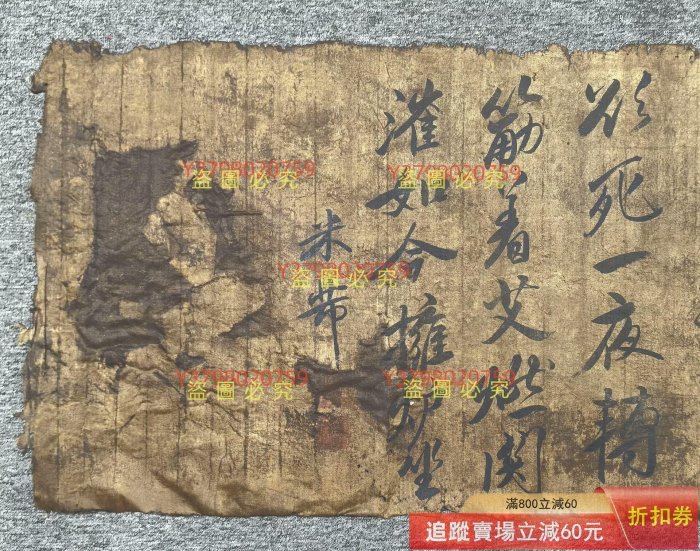 欲死一夜轉
筋着艾燃関
如今擁炉坐
米芾
Y3708020759
盗圖必究
Y3708020759
盗圖必究
Y3708020759
盗圖必究
Y3708020759
盗圖必究
Y3708020759
盗圖必究
滿800立減60
追蹤賣場立減60元
折扣券